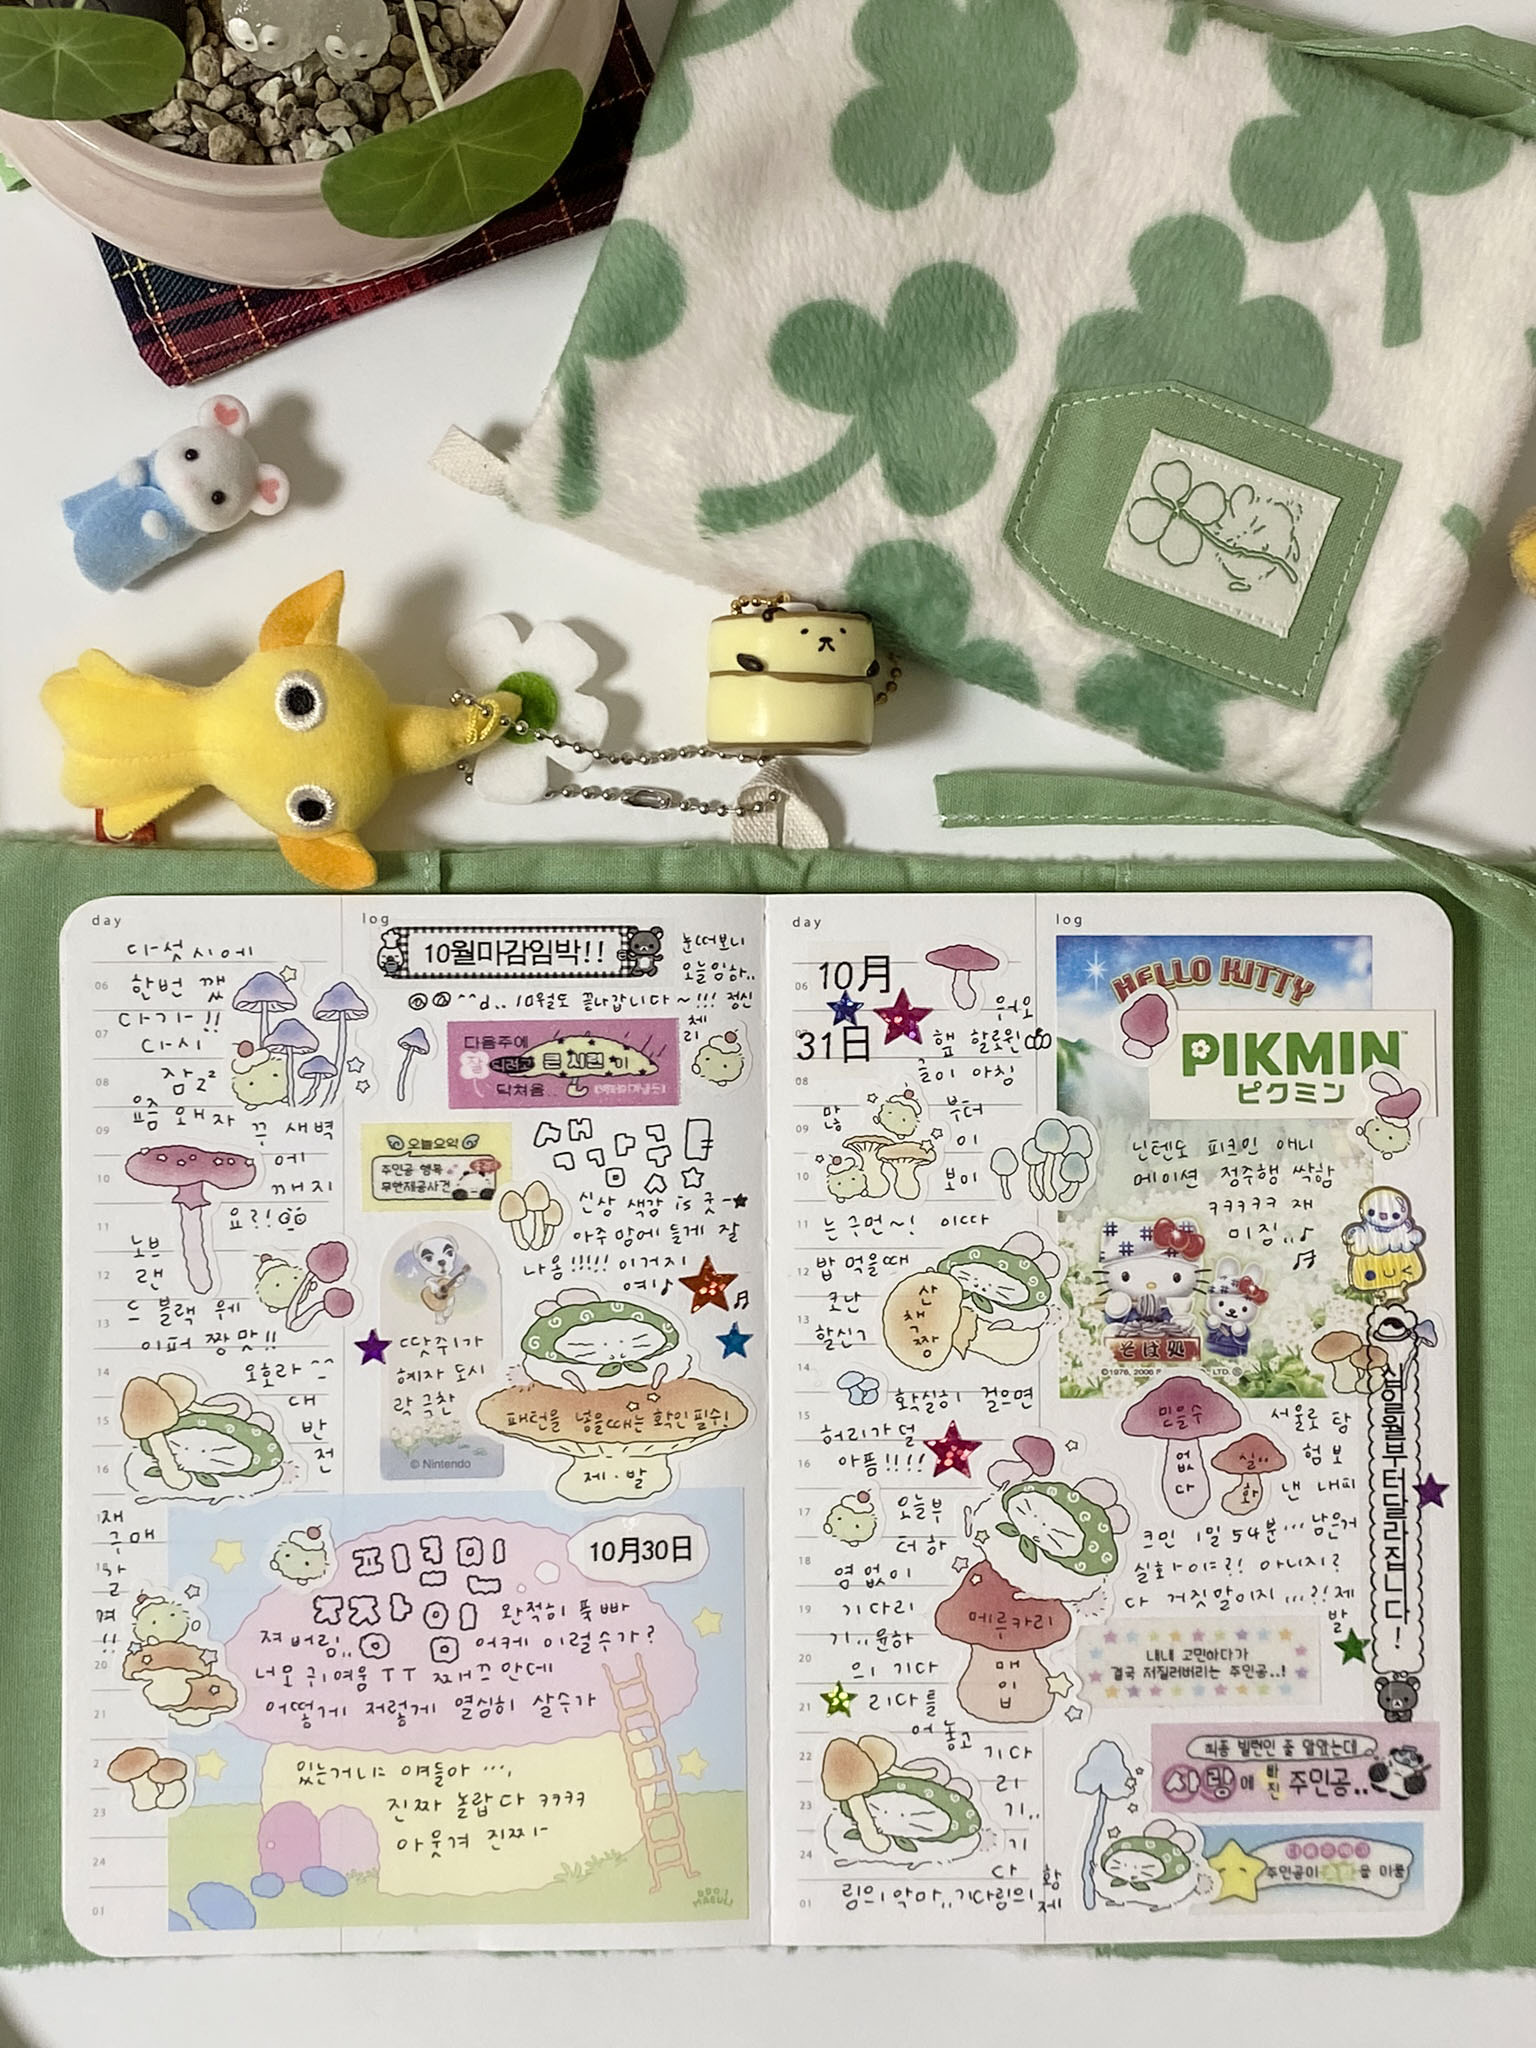 day
log
다섯시에
한번 깼
다가!!
다시
잠zz
요즘 왜 자
꾸 새벽
에
깨지
요?!
노브
랜
드 블랙 웨
이퍼 짱맛!!
오호라^^
대
반
전
재
구매
할
겨
!!
10월마감임박!!
눈떠보니
오늘임하..
^^d.. 10월도 끝나갑니다~!!! 정신
체
리
다음주에
큰 시련 기
닥처음..
오늘요약
주인공 행복
무한제공사건
새 가고
신상 색감 is 굿-★
아주 맘에 들게 잘
나옴!!!!! 이거지
예♪
© Nintendo
닷쥐가
혜자 도시
락 극찬
패턴을 넣을때는 확인필수!
제·발
10月30日
피크민
ㅈㅈㅏ이
완적히 푹 빠
져버림.. 어케 이럴수가?
너모 귀여움TT 째끄만데
어떻게 저렇게 열심히 살수가
있는거니? 얘들아 ...,
진짜 놀랍다 ㅋㅋㅋㅋ
아웃겨 진짜-
day
log
10月
31日
워오
햅 할로윈
놀이 아침
부터
많
이
보이
는구먼~! 이따
밥 먹을때
코난
할신ㄱ
산
책
짱
확실히 걸으면
허리가 덜
아픔!!!!
오늘부
터 하
염없이
기다리
기..윤하
의 기다
리다를
어 놓고
기다
리
기..
기
다
림의 악마..기다림의
황
제
메루카리
매
입
HELLO KITTY
PIKMIN™
ピクミン
닌텐도 피크민 애니
메이션 정주행 싹함
ㅋㅋㅋㅋㅋ 재
미짐..♪
そば処
믿을수
없
다
실..
화
서울로 탐
험 보
낸 내피
크민 1일 54분...남은거
실화야?! 아니지?
다 거짓말이지...?! 제
발
십일월부터달라집니다!
내내 고민하다가
결국 저질러버리는 주인공..!
최종 빌런인 줄 알았는데
사랑에 빠진 주인공..